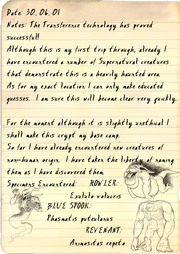 Date: 30. 06. 01
Notes: The Transference technology has proved
successful!
Although this is my first trip through, already I
have encountered a number of Supernatural creatures
that demonstrate this is a heavily haunted area
As for my exact location I can only make educated
guesses. I am sure this will become clear very quickly.
For the moment although it is slightly unethical I
shall make this crypt my base camp.
So far I have already encountered new creatures of
non-human origin. I have taken the liberty of naming
them as I have discovered them
Specimens Encountered: HOWLER:
Exululo volucris
BLUE SPOOK:
Phasmatis puteulanus
REVENANT:
Animositas repeto